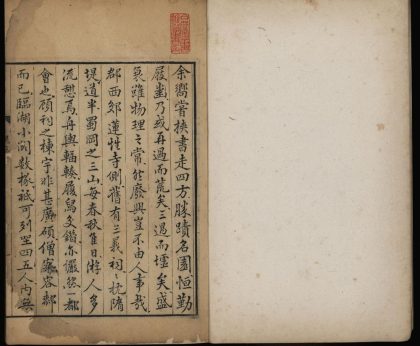 余嚮嘗挾書走四方勝蹟名園恒勤
屐齒乃或再過而荒矣三過而墟矣盛
衰雖物理之常然廢興豈不由人事哉
郡西郊蓮性寺側舊有三義祠祠枕隋
堤道半蜀岡之三山每春秋佳日游人多
流憩焉舟輿輻輳履舄交錯亦儼然一都
會也顧祠之棟宇非甚廣碩僧寮容
而已臨湖小閣數椽祗可列坐四五人內無